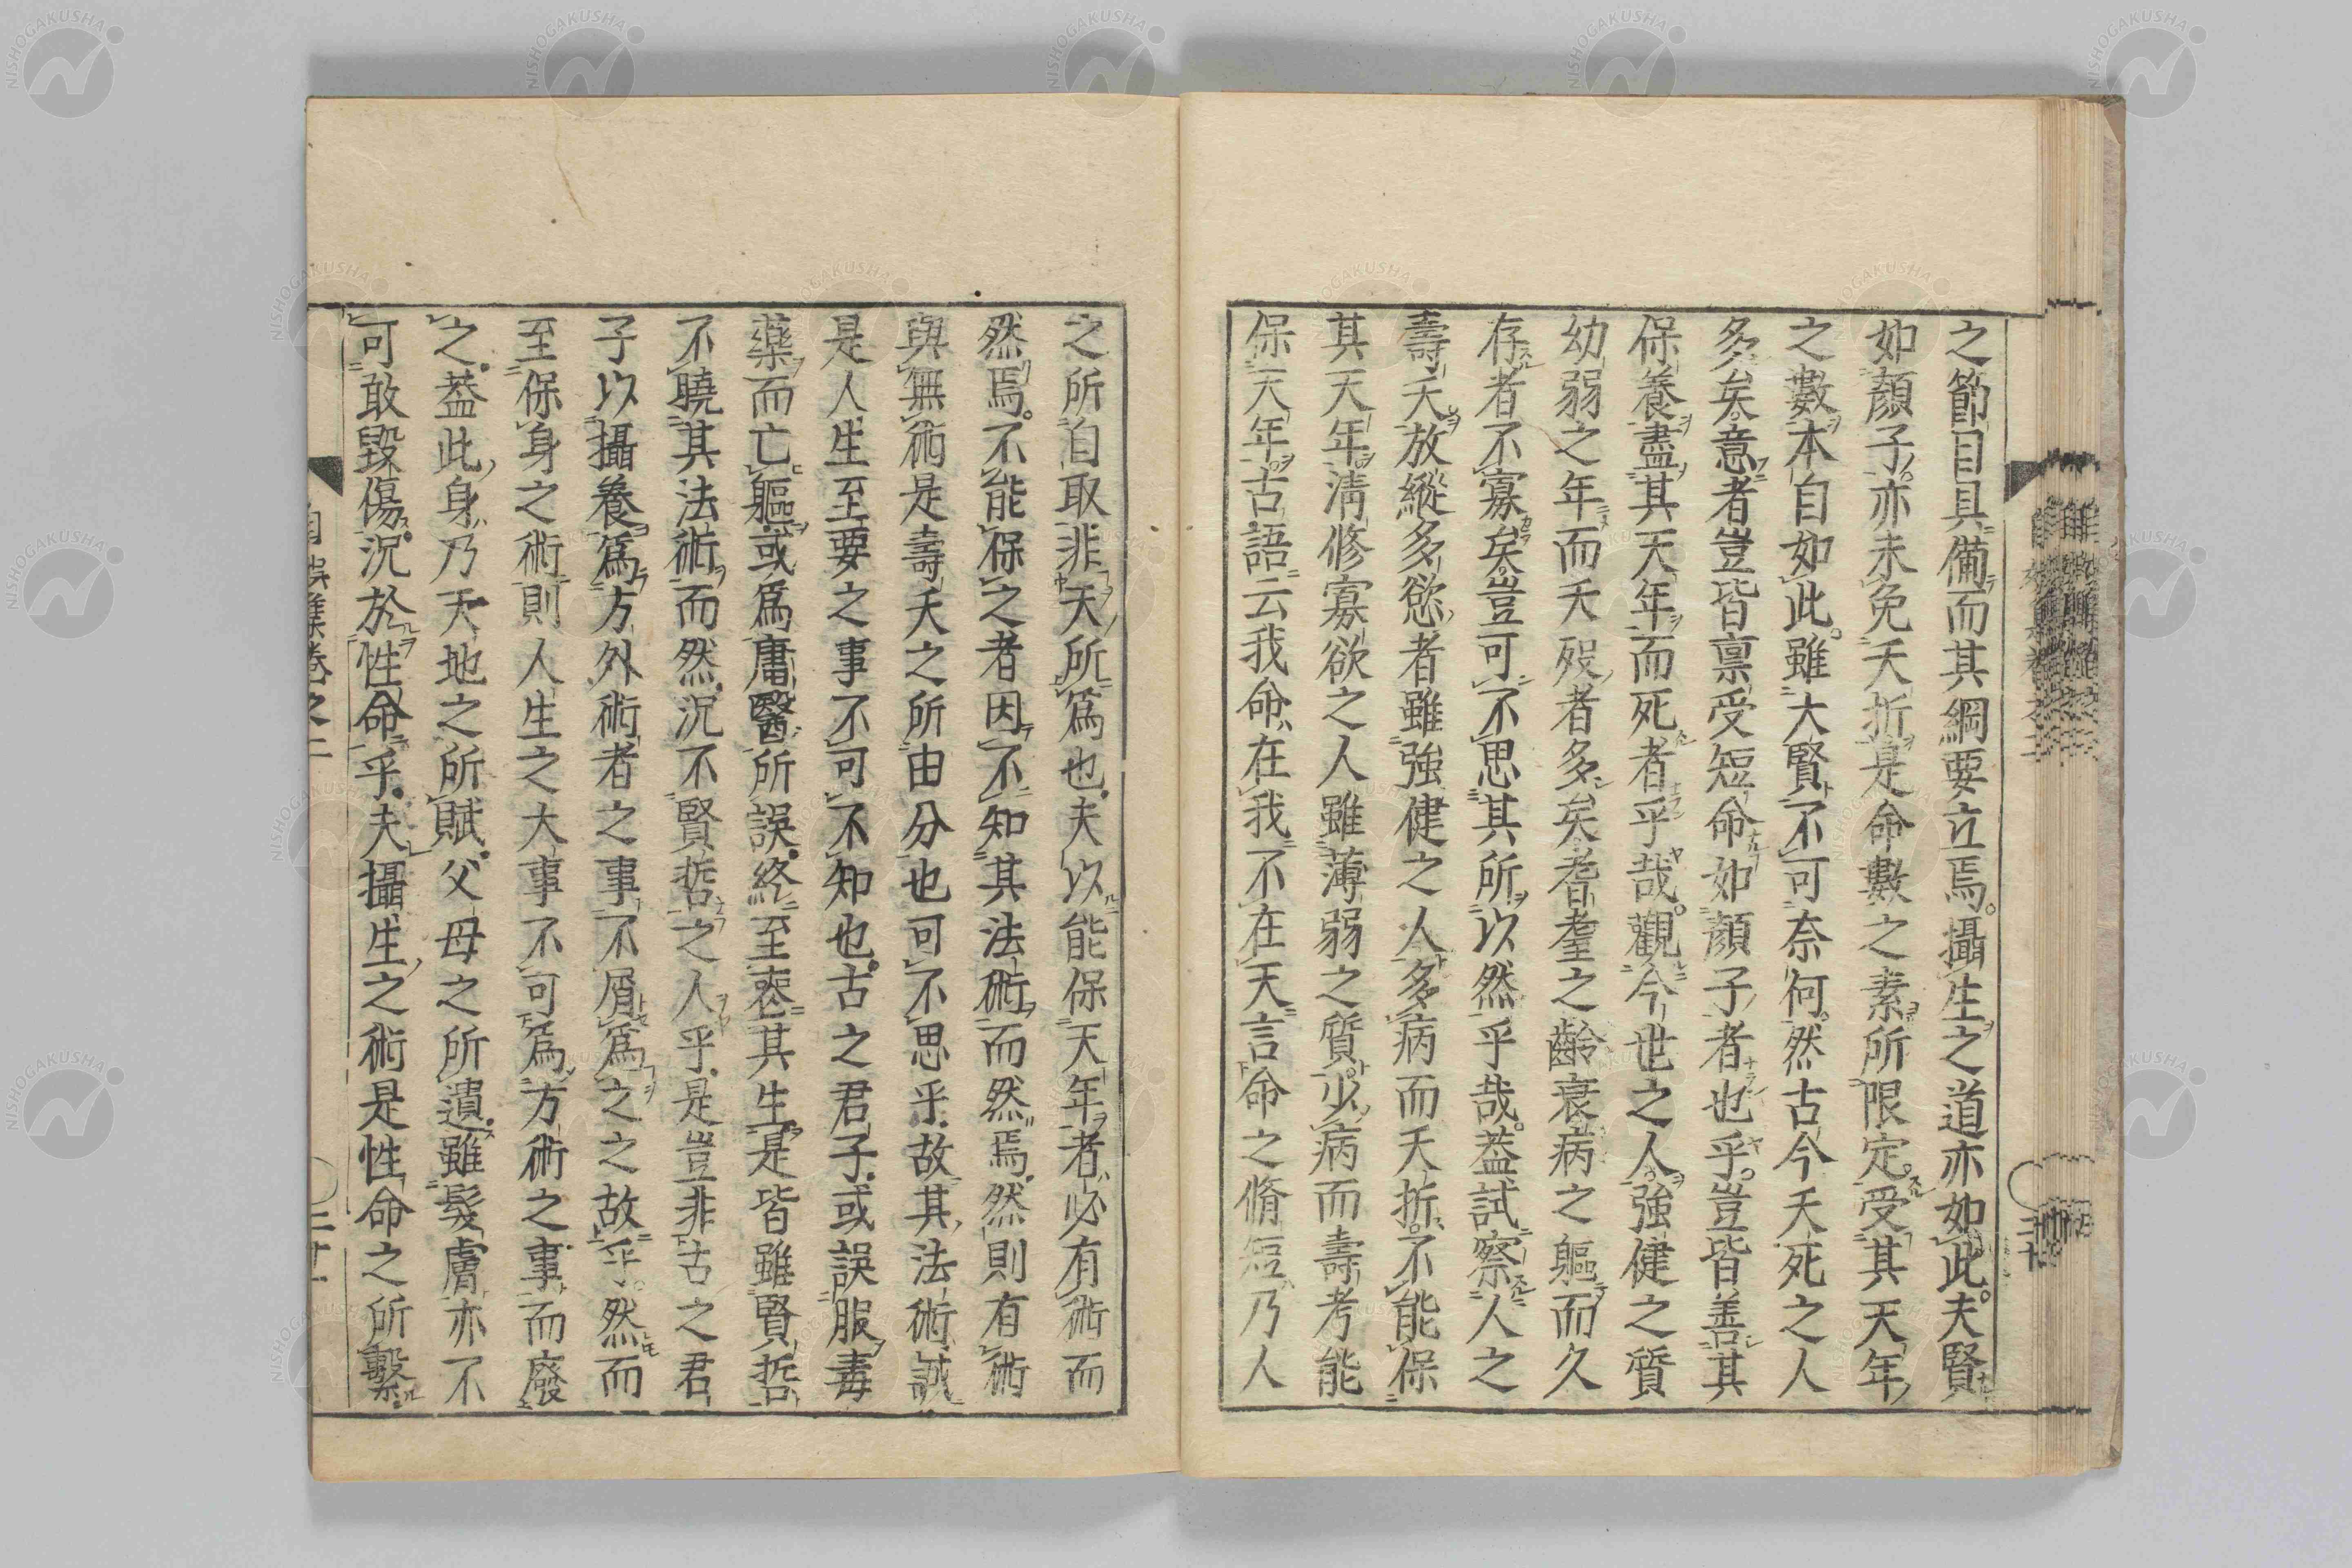 之節目具備而其綱要立焉。攝生之道亦如此。夫賢
如顏子亦未免夭折是命數之素所限定。受其天年
之數本自如此。雖大賢不可奈何。然古今夭死之人
多矣。意者豈皆稟受短命如顏子者也乎。豈皆善其
保養盡其天年而死者乎哉。觀今世之人。強健之質
幼弱之年而夭歿者多矣。耆耋之齡衰病之軀而久
存者不寡矣。豈可不思其所以然乎哉。葢試察人之
壽夭放縱多慾者雖強健之人多病而夭折。不能保
其天年。清修寡欲之人雖薄弱之質。少病而壽考能
保天年。古語云我命在我不在天言命之脩短乃人
之所自取非天所爲也。夫以能保天年者必有術而
然焉。不能保之者因不知其法術而然焉。然則有術
與無術是壽夭之所由分也可不思乎。故其法術誠
是人生至要之事不可不知也。古之君子。或誤服毒
藥而亡軀。或爲庸醫所誤。終至喪其生。是皆雖賢哲
不曉其法術而然。況不賢哲之人乎。是豈非古之君
子以攝養爲方外術者之事不屑爲之之故乎。然而
至保身之術則人生之大事不可爲方術之事而廢
之。葢此身乃天地之所賦。父母之所遺。雖髮膚亦不
可敢毀傷。況於性命乎。夫攝生之術是性命之所繫。
自娛集卷之二
二十一